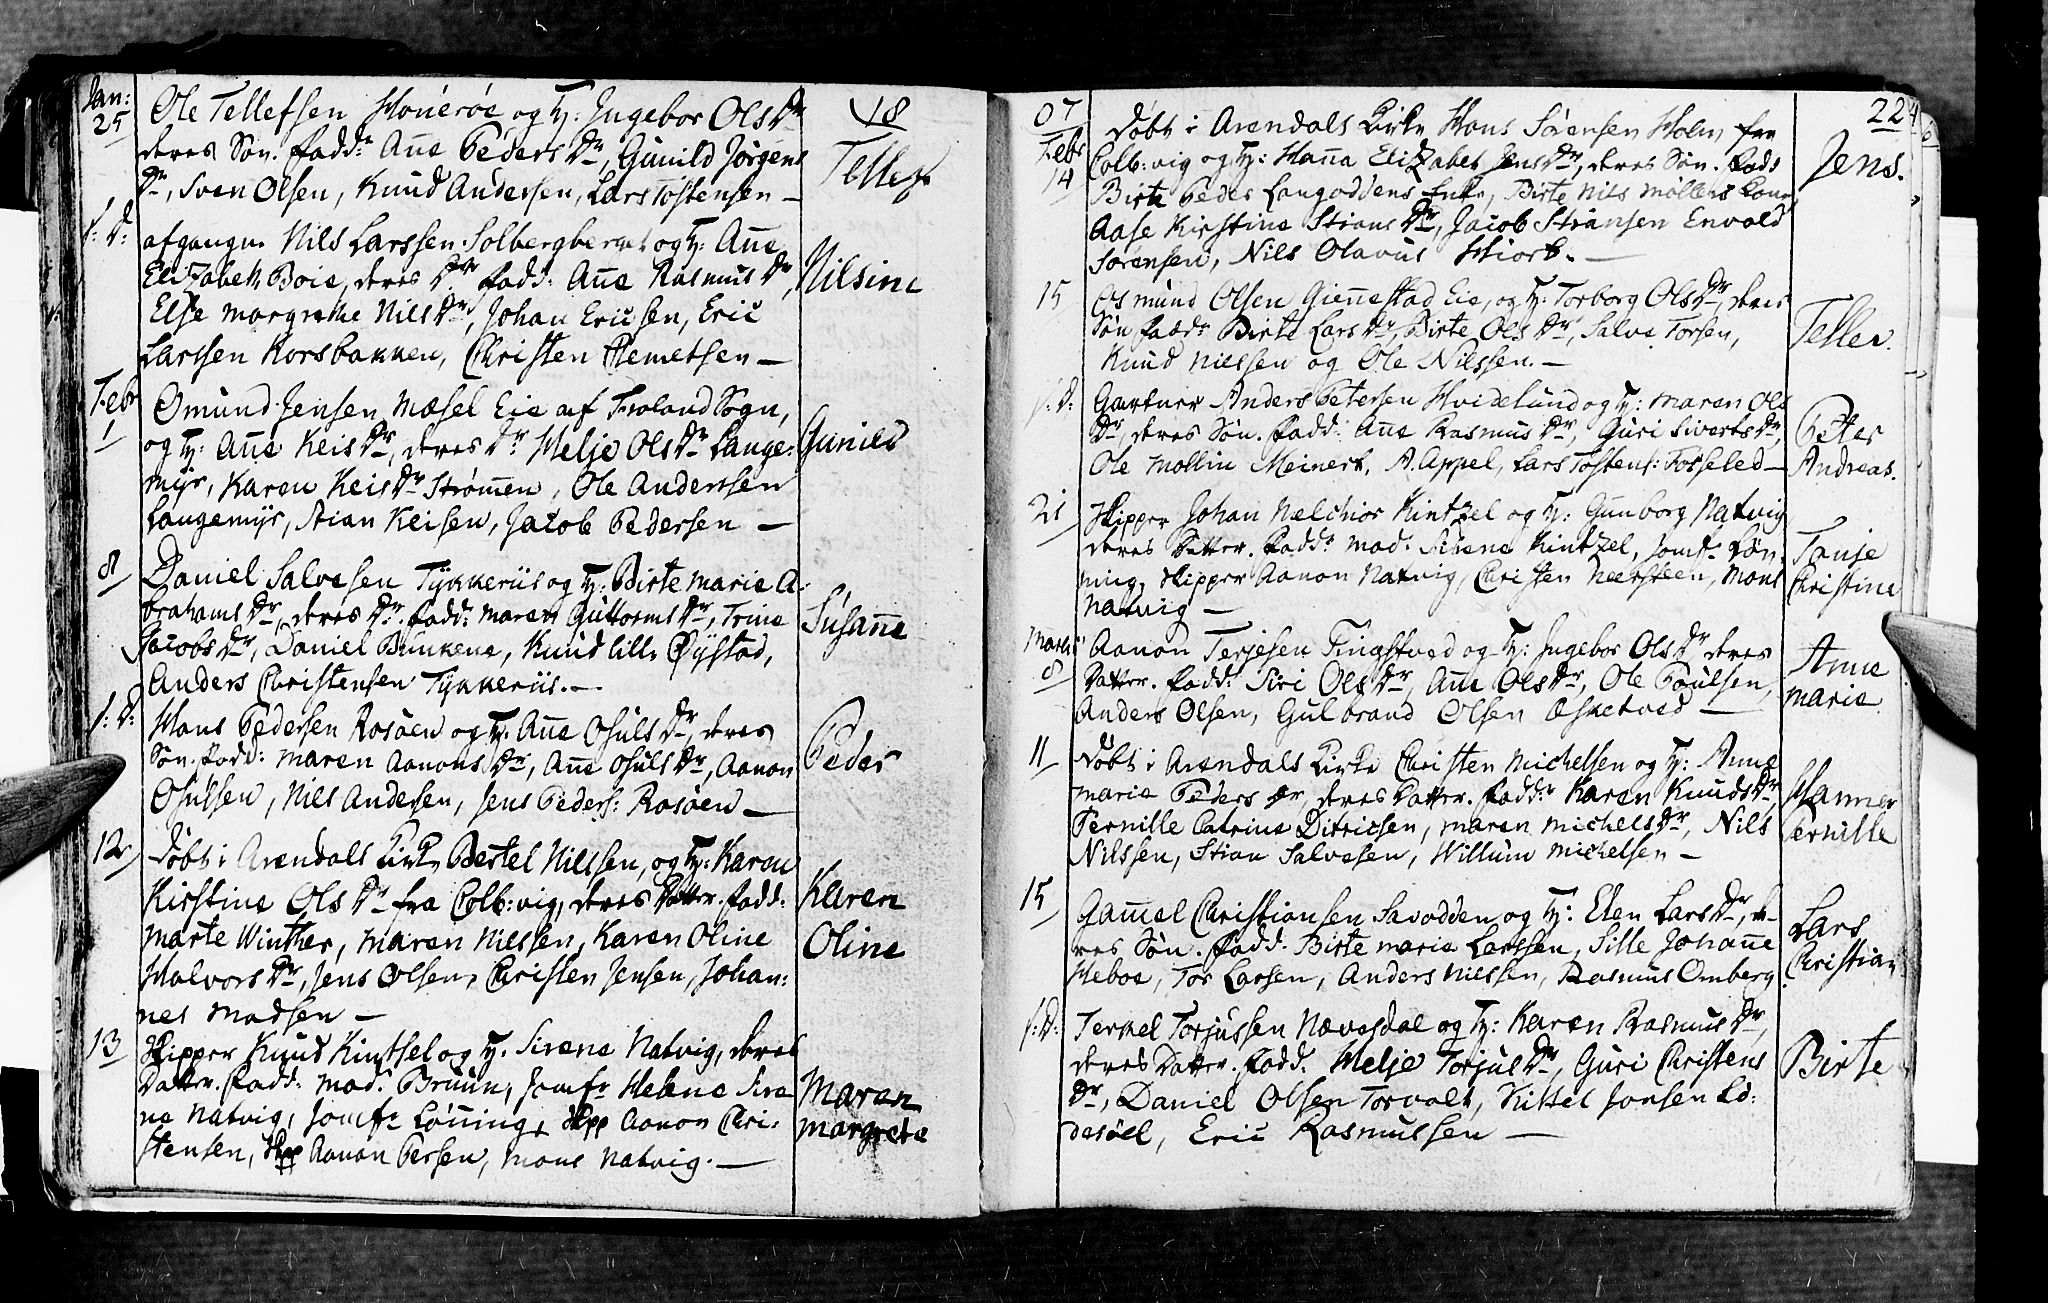 Jan: 25
18
Ole Tellefsen Honerøe og H: Ingebor Ols Dr
deres Søn. Fadd: Ane Peders Dr, Gunild Jørgens
Dr, Sven Olsen, Knud Andersen, Lars Tostensen —
Tellef
s: D:
afgangne Nils Larssen Solbergberget og H: Ane
Elizabeth Boie, deres Dr. Fadd: Ane Rasmus Dr,
Else Margrethe Nils Dr, Johan Ericsen, Eric
Larssen Korsbakken, Christen Clemetsen —
Nilsine
Febr 1
Omund Jensen Mæsel Eie af Froland Sogn,
og H: Ane Keis Dr, deres Dr Helje Ols Dr Lange:
myr, Karen Keis Dr Strømen, Ole Anderssen
Langemyr, Stian Keisen, Jacob Pedersen —
Gunild
8
Daniel Salvesen Tykkeriis og H: Birte Marie A:
brahams Dr, deres Dr. Fadd: Maren Guttorms Dr, Trine
Jacobs Dr, Daniel Bunkene, Knud Lille Øystad,
Anders Christensen Tykkeriis. —
Susane
s: D:
Hans Pedersen Rosøen og H: Ane Osuls Dr, deres
Søn. Fadd: Maren Aanons Dr, Ane Osuls Dr, Aanon
Osulssen, Nils Andersen, Jens Peders: Rosøen —
Peder
12
Døbt i Arendals Kirke Bertel Nilssen, og H: Karen
Kirstine Ols Dr fra Colb:vig, deres Datter. Fadd:
Marte Winther, Maren Nilssen, Karen Oline
Halvors Dr, Jens Olsen, Christen Jensen, Johan:
nes Madsen —
Karen
Oline
13
Skipper Knud Kintsel og H. Sirene Natvig, deres
Datter. Fadd: Mad. Bruun, Jomfr Helene Sire
ne Natvig, Jomfr Lønning, Skpp Aanon Chri:
stensen, Skpp Aanon Persen, Mons Natvig. —
Maren
Margrete
07
224
Febr 14
Døbt i Arendals Kirke Hans Sørensen Holm, fra
Colb:vig og H: Hanna Elizabet Jens Dr, deres Søn. Fadd
Birte Peder Langoddens Enke, Birte Nils Møllers Kone
Aase Kirstine Stians Dr, Jacob Stiansen Envold
Sørensen, Nils Olavus Hiort. —
Jens.
15
Osmund Olsen Giennestad Eie, og H: Torborg Ols Dr, deres
Søn Fadd: Birte Lars Dr, Birte Ols Dr, Salve Torsen,
Knud Nilssen og Ole Nilssen. —
Tellev.
s: D:
Gartner Anders Petersen Hvidelund og H: Maren Ols
Dr, deres Søn. Fadd: Ane Rasmus Dr, Guri Siverts Dr,
Ole Mollin Meinert, A. Appel, Lars Tostens: Fosseled —
Peter
Andreas.
21
Skipper Johan Melchior Kintzel og H: Gunborg Natvig
deres Datter. Fadd: Mad: Sirene Kintzel, Jomf: Løn:
ning, Skipper Aanon Natvig, Christen Neersteen, Mons
Natvig —
Tanje
Christine
Martii 8
Aanon Terjesen Tingstved og H: Ingebor Ols Dr deres
Datter. Fadd: Siri Ols Dr, Ane Ols Dr, Ole Poulsen,
Anders Olsen, Gulbrand Olsen Æsketved —
Anne
Marie
11
Døbt i Arendals Kirke Christen Michelsen og H: Anne
Marie Peders Dr, deres Datter. Fadd: Karen Knuds Dr
Pernille Catrine Ditricsen, Maren Michels Dr, Nils
Nilssen, Stian Salvesen, Willum Michelsen —
Hanne
Pernille
15
Gamel Christiansen Savodden og H: Elen Lars Dr, de-
res Søn. Fadd: Birte Marie Larssen, Sille Johanne
Heboe, Tor Larsen, Anders Nilssen, Rasmus Omberg
Lars
Christian
s: D:
Terkel Torjussen Nævesdal og H: Karen Rasmus Dr,
deres Datter. Fadd: Helje Torjus Dr, Guri Christens
Dr, Daniel Olsen Torvolt, Kittel Jonsen Lø:
desøel, Eric Rasmussen —
Birte